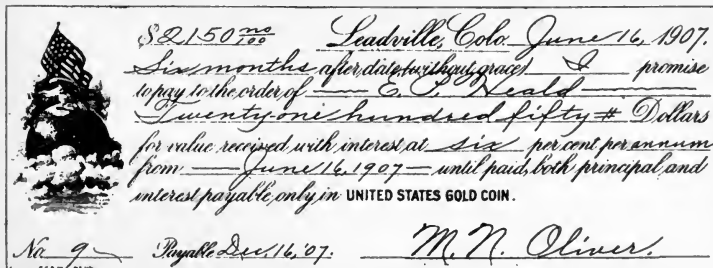 $2150 no/100 Leadville, Colo. June 16, 1907.
Six months after date (without grace) I promise
to pay to the order of E. P. Heald
Twenty-one hundred fifty # Dollars
for value received with interest at six per cent per annum
from June 16, 1907 until paid, both principal and
interest payable only in UNITED STATES GOLD COIN.
No 9 Payable Dec. 16, '07. M. N. Oliver.